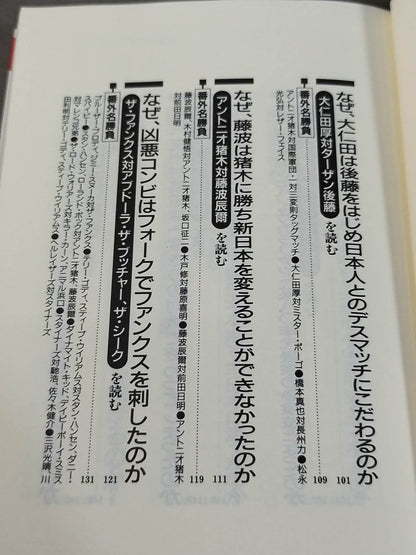 なぜ、大仁田は後藤をはじめ日本人とのデスマッチにこだわるのか 101
大仁田厚対ターザン後藤を読む
番外名勝負 109
アントニオ猪木対国際軍団・一対三変則タッグマッチ●大仁田厚対ミスター・ポーゴ●橋本真也対長州力●松永
光弘対レザー・フェイス
なぜ、藤波は猪木に勝ち新日本を変えることができなかったのか 111
アントニオ猪木対藤波辰爾を読む
番外名勝負 119
藤波辰爾、木村健悟対アントニオ猪木、坂口征二●木戸修対藤原喜明●藤波辰爾対前田日明●アントニオ猪木
対前田日明
なぜ、凶悪コンビはフォークでファンクスを刺したのか 121
ザ・ファンクス対アブドーラ・ザ・ブッチャー、ザ・シークを読む
番外名勝負 131
ブルーザー・ブロディ、ジミー・スヌーカ対ザ・ファンクス●テリー・ゴディ、スティーブ・ウィリアムス対スタン・ハンセン、ダニー・
スパイビー●スタン・ハンセン、ローランド・ボック対アントニオ猪木、藤波辰爾●ダイナマイト・キッド、デイビーボーイ・スミス
対マレンコ兄弟●ザ・ロード・ウォリアーズ対キラー・カーン、アニマル浜口●スタイナーズ対馳浩、佐々木健介●三沢光晴、川
田利明対テリー・ゴディ、スティーブ・ウィリアムス●ヘルレイザーズ対スタイナーズ